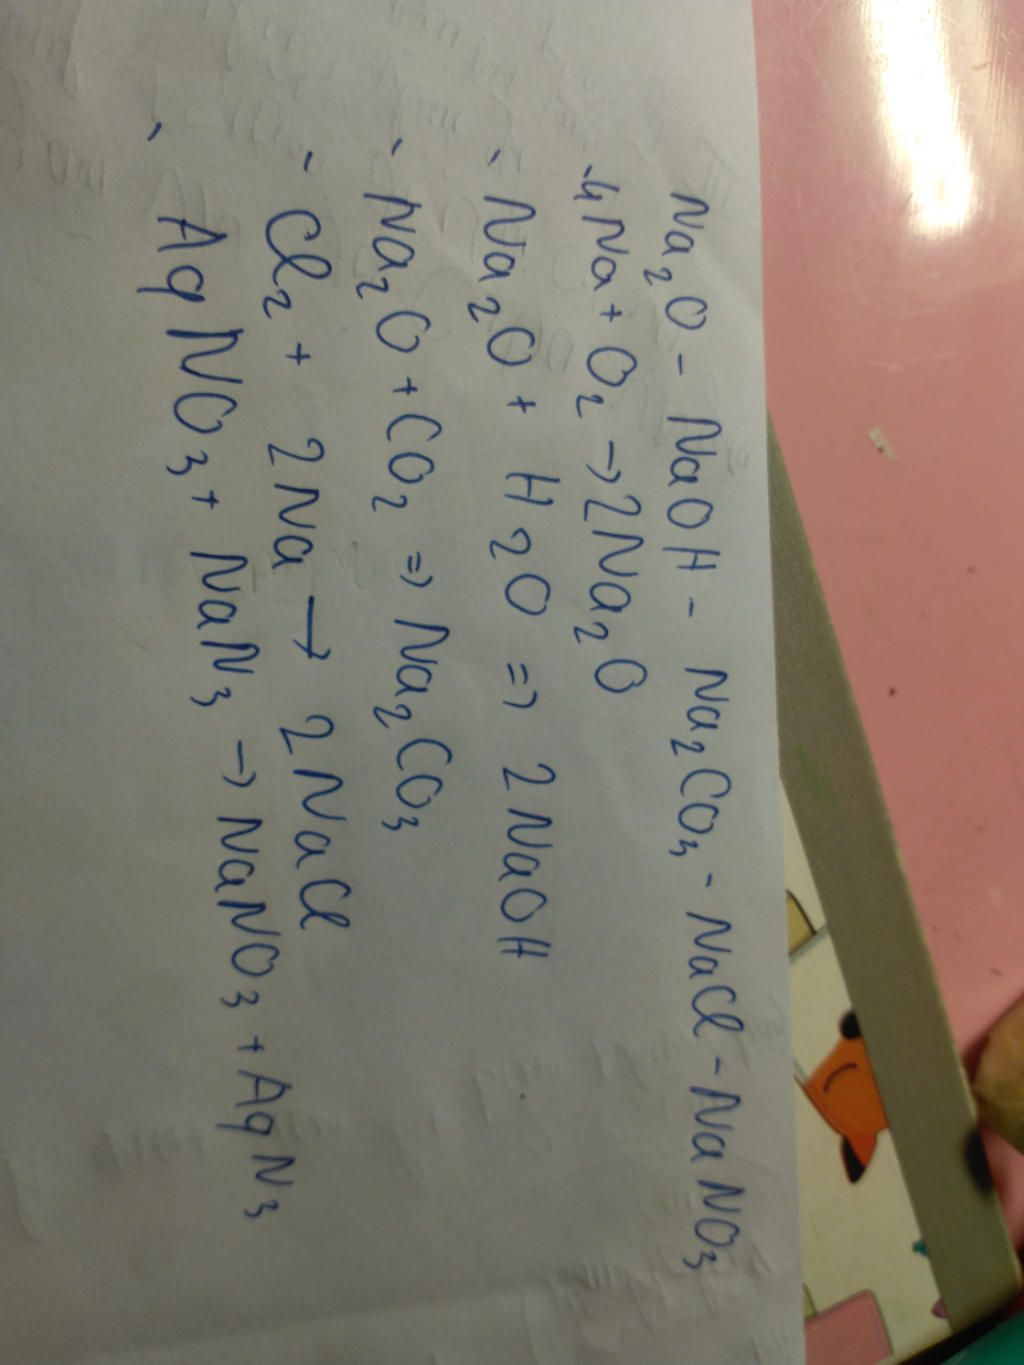 Na₂O - NaOH - Na₂CO₃ - NaCl - NaNO₃
· 4Na + O₂ → 2Na₂O
· Na₂O + H₂O => 2NaOH
· Na₂O + CO₂ => Na₂CO₃
- Cl₂ + 2Na → 2NaCl
· AgNO₃ + NaN₃ → NaNO₃ + AgN₃